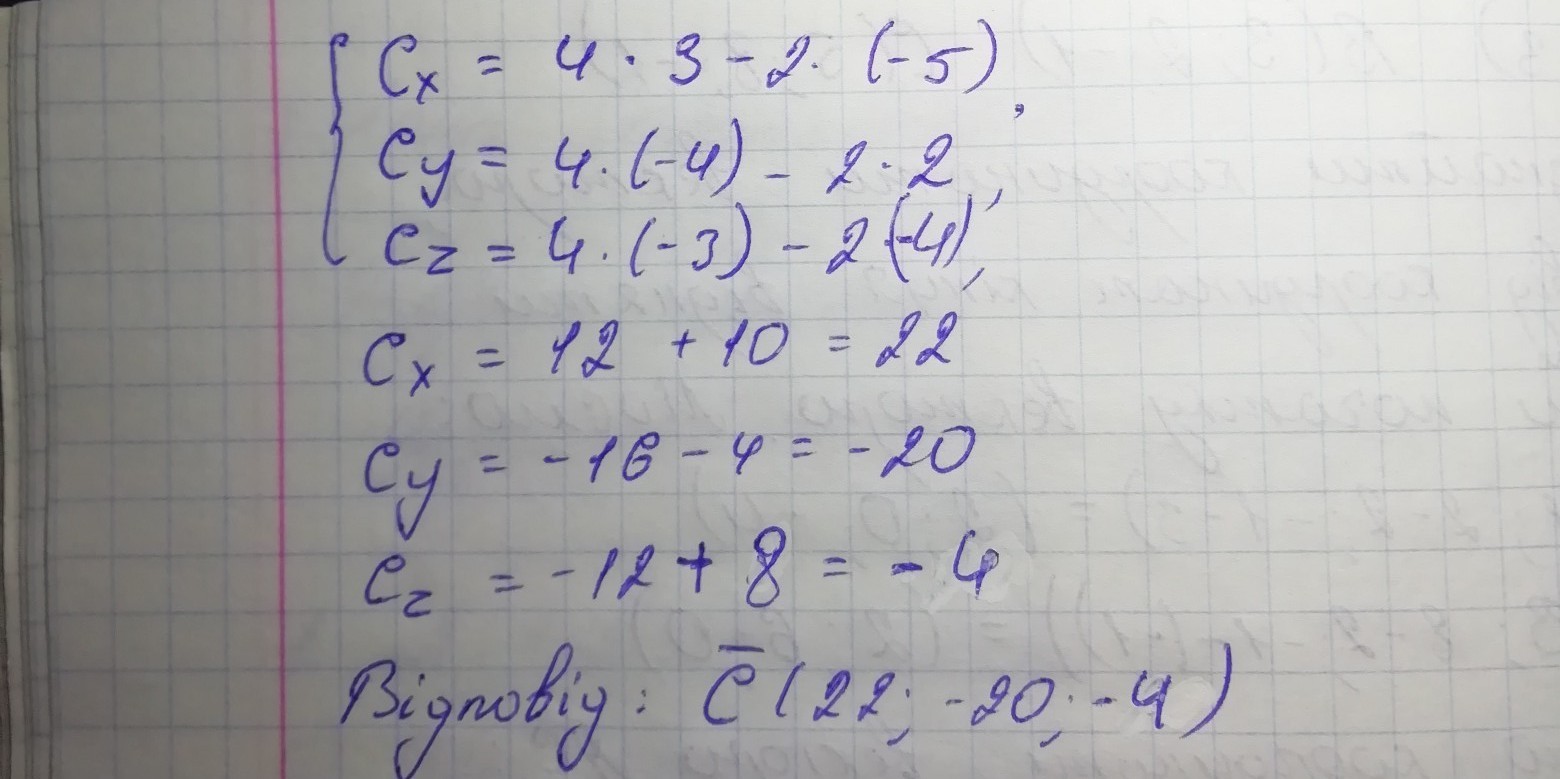 Cx = 4 · 3 - 2 · (-5),
Cy = 4 · (-4) - 2 · 2,
Cz = 4 · (-3) - 2 (-4),
Cx = 12 + 10 = 22
Cy = -16 - 4 = -20
Cz = -12 + 8 = -4
Відповід: C̅ (22; -20; -4)